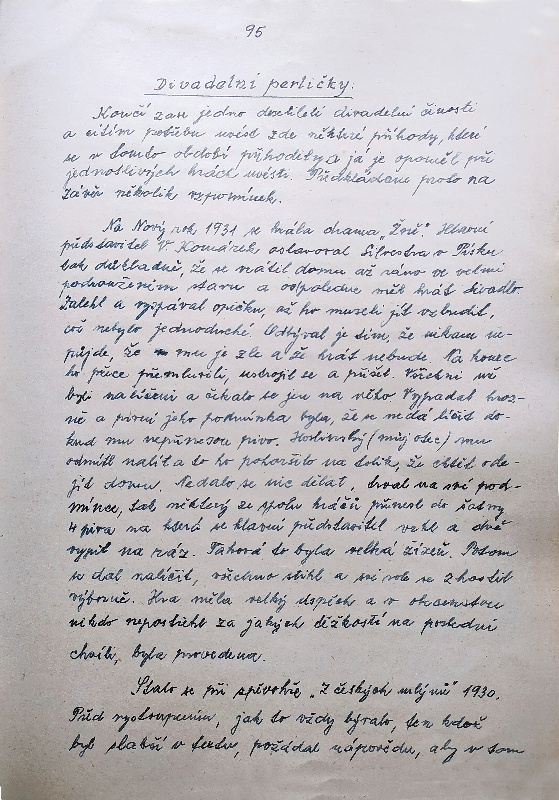 95
Divadelní perličky.
Končí zase jedno desetiletí divadelní činosti
a cítím potřebu uvést zde některé příhody, které
se v tomto období přihodily a já je opoměl při
jednotlivých hrách uvésti. Předkládám proto na
závěr několik vzpomínek.
Na Nový rok 1931 se hrálo drama „Žně". Hlavní
představitel V. Komárek oslavoval Silvestra v Písku
tak důkladně, že se vrátil domu až ráno ve velmi
podroužením stavu a odpoledne měl hrát divadlo
Zalehl a vyspával opičku, až ho museli jít vzbudit,
což nebylo jednoduché. Odbýval je tím, že nikam ne-
půjde, že mu je zle a že hrát nebude. Na konec
ho přece přemluvili, ustrojil se a přišel. Všichni už
byli nalíčeni a čekalo se jen na něho. Vypadal hroz-
ně a první jeho podmínka byla, že se nedá líčit do-
kud mu nepřinesou pivo. Hostinský (můj otec) mu
odmítl nalít a to ho pohoršilo na tolik, že chtěl ode-
jít domu. Nedalo se nic dělat, trval na své pod-
mínce, tak některý ze spolu hráčů přinesl do šatny
4 piva na která se hlavní představitel vrhl a dvě
vypil na ráz. Taková to byla velká žízeň. Potom
se dal nalíčit, všechno stihl a své role se zhostil
výborně. Hra měla velký úspěch a v obecenstvu
nikdo nepostřehl za jakých těžkostí na poslední
chvíli, byla provedena.
Stalo se při zpěvohře „Z českých mlýnů" 1930.
Před vystoupením, jak to vždy bývalo, ten kdož
byl slabší v textu, požádal nápovědu, aby v tom